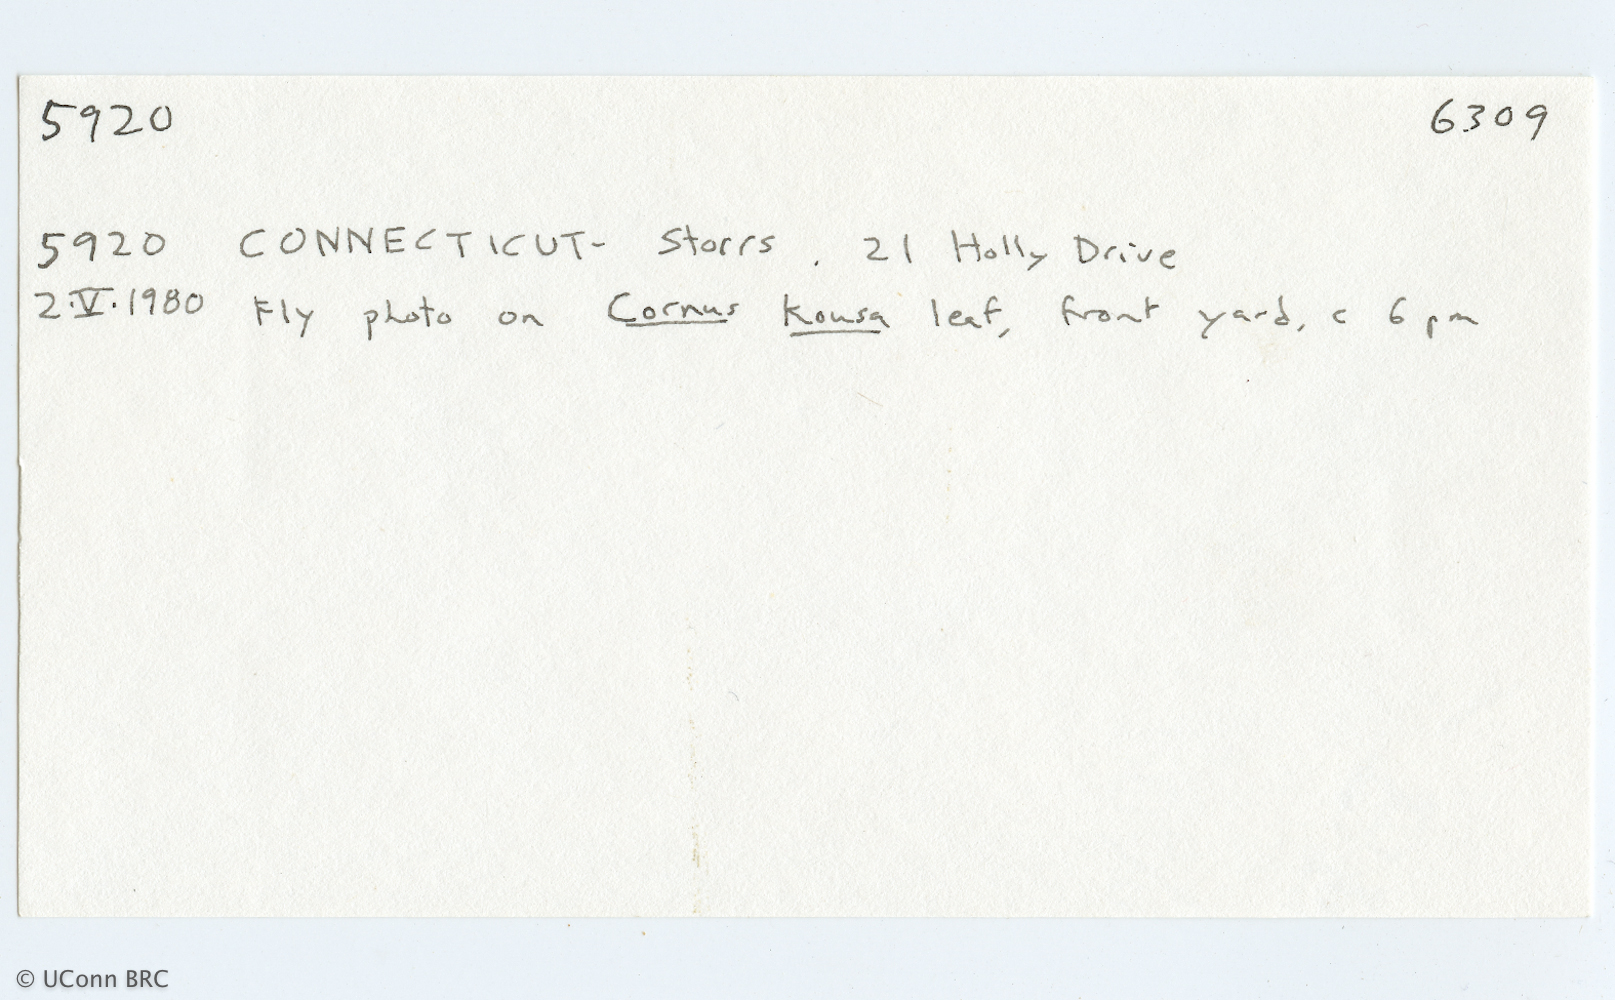 5920 6309
5920 CONNECTICUT- Storrs. 21 Holly Drive
2.V.1980 Fly photo on Cornus Kousa leaf, front yard, c 6 pm
© UConn BRC